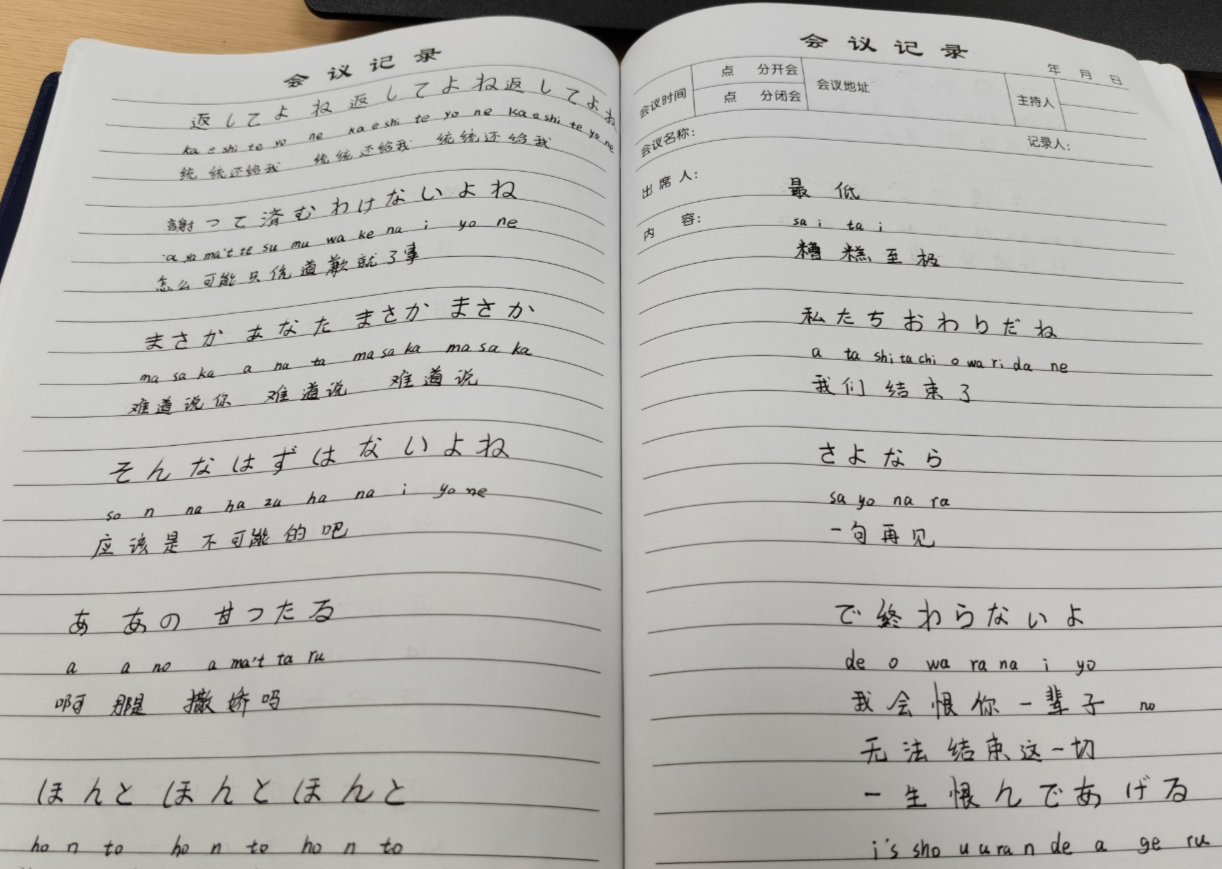 会议记录
返してよね 返してよね 返してよね
ka e shi te yo ne ka e shi te yo ne ka e shi te yo ne
统统还给我 统统还给我 统统还给我
謝って済むわけないよね
a ya ma't te su mu wa ke na i yo ne
怎么可能只凭道歉就了事
まさか あなた まさか まさか
ma sa ka a na ta ma sa ka ma sa ka
难道说你 难道说 难道说
そんなはずはないよね
so n na ha zu ha na i yo ne
应该是不可能的吧
あ あの 甘ったる
a a no a ma't ta ru
啊 那是 撒娇吗
ほんと ほんと ほんと
ho n to ho n to ho n to
会议记录
年 月 日
会议时间 点 分开会 会议地址 主持人
点 分闭会
会议名称: 记录人:
出席人:
最低
内容:
sa i ta i
糟糕至极
私たちおわりだね
a ta shi ta chi o wa ri da ne
我们结束了
さよなら
sa yo na ra
一句再见
で終わらないよ
de o wa ra na i yo
我会恨你一辈子 no
无法结束这一切
一生恨んであげる
i's sho u u ra n de a ge ru